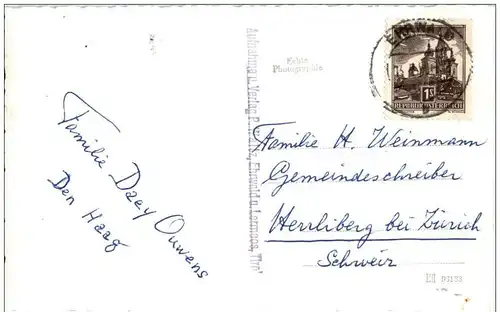 Familie Daey Ouwens
Den Haag
Aufnahme u. Verlag
Ehrwald u. Lermoos, Tirol
Echte
Photographie
EHRWALD
1S
REPUBLIK ÖSTERREICH
Familie H. Weinmann
Gemeindeschreiber
Herrliberg bei Zürich
Schweiz